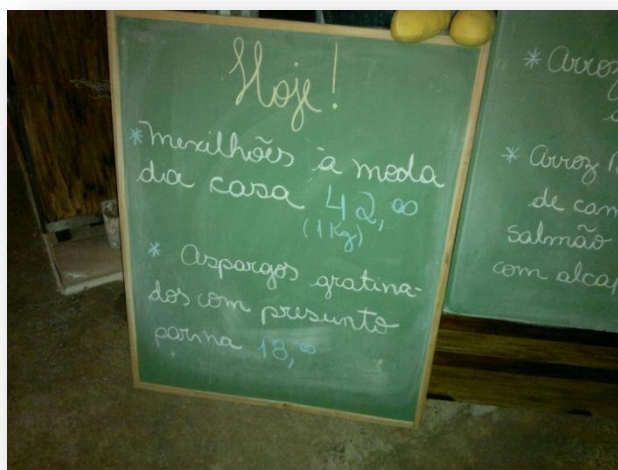 Hoje!
* Mexilhões à moda
da casa 42,00
(1Kg)
* Aspargos gratina-
dos com presunto
parma 18,00
* Arroz
* Arroz
de
salmão
com